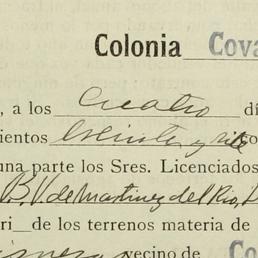 Colonia Cova
, a los cuatro dí
ientos treinta y siete
una parte los Sres. Licenciados
B. V. de Martinez del Rio, P
ri de los terrenos materia de
vecino de Co